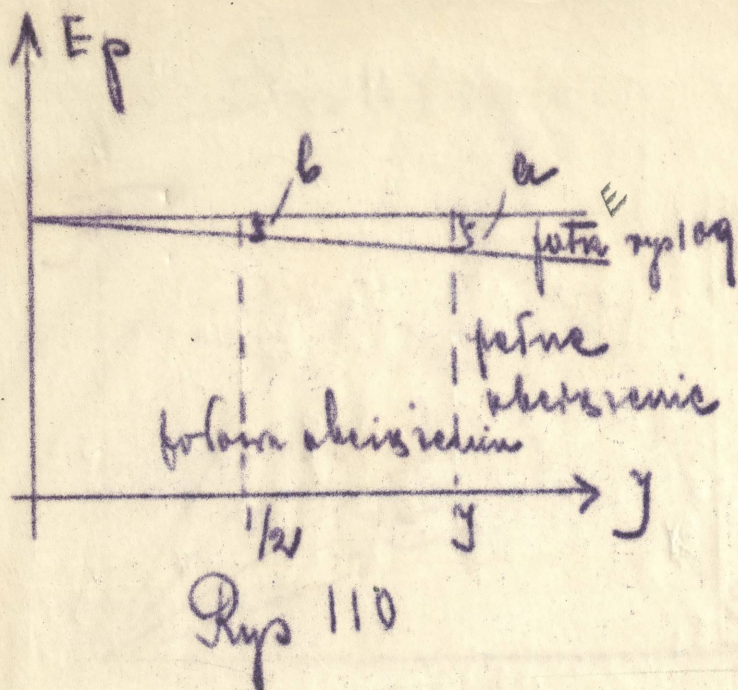 Ep
b
a
E
patrz rys 109
pełne
obciążenie
połowa obciążenia
1/2
J
J
Rys 110